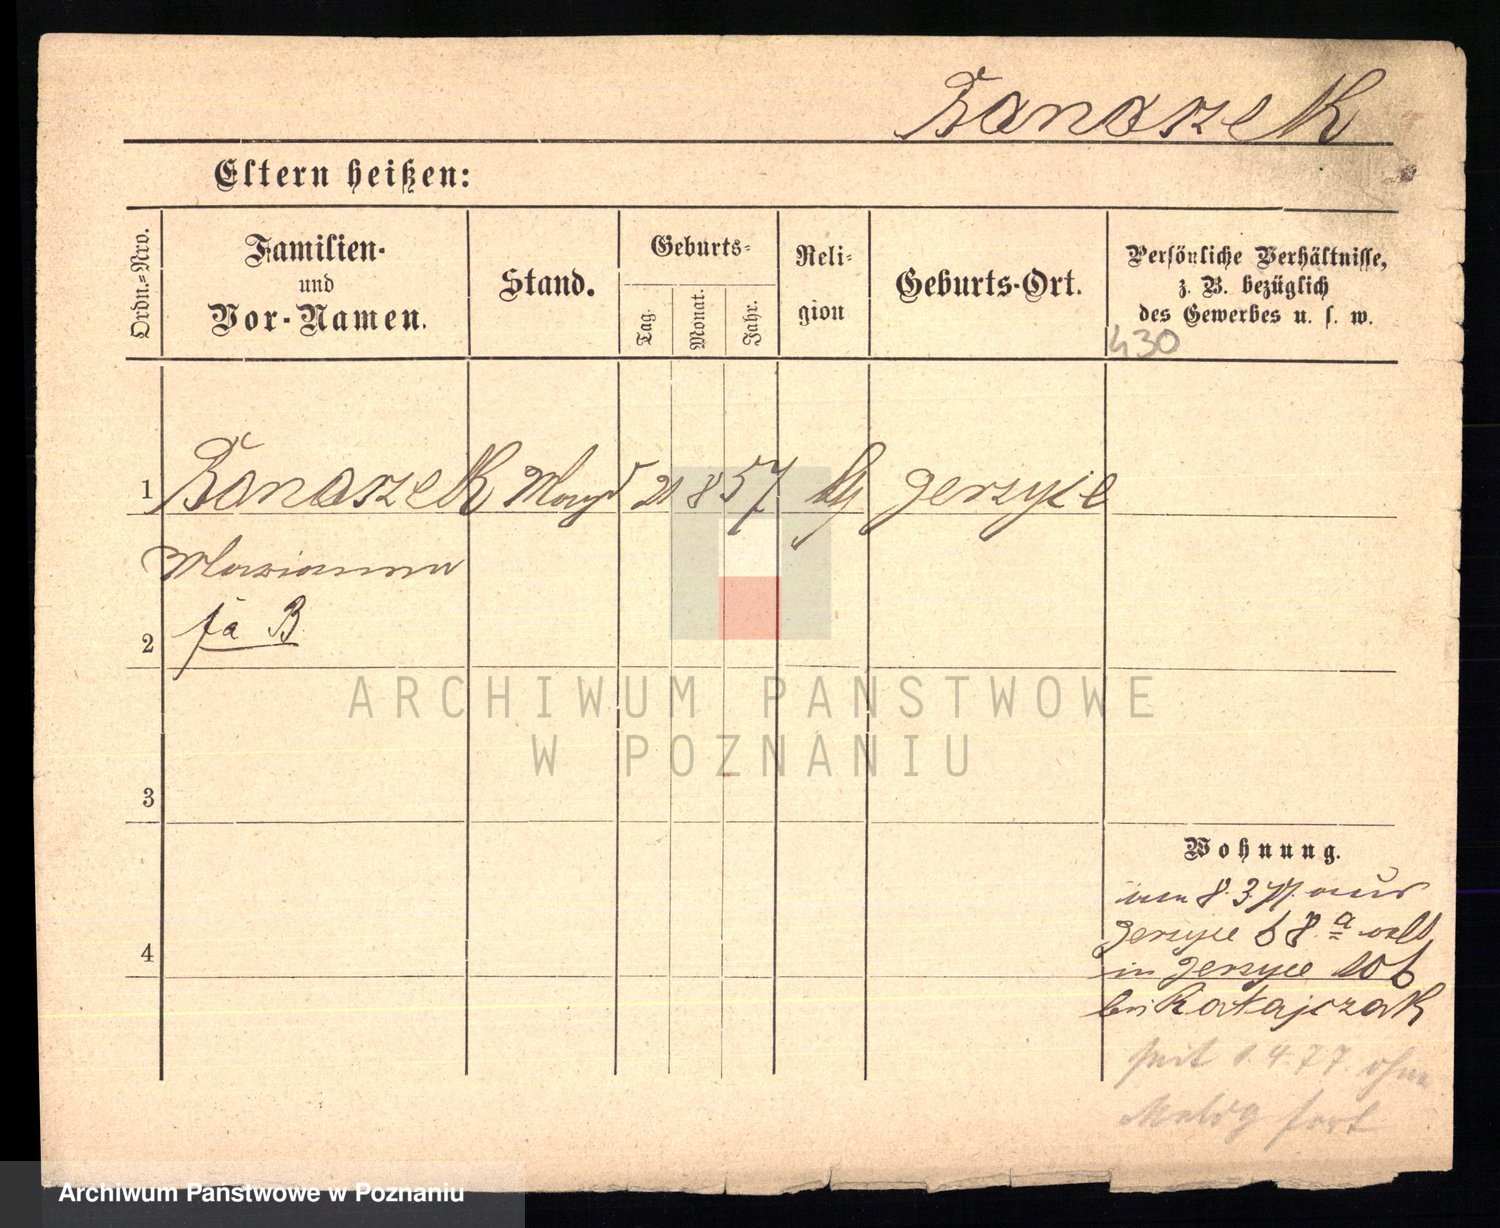 Banaszek
Eltern heißen:
Ordn.-Nro.
Familien-
und
Vor-Namen.
Stand.
Geburts-
Tag.
Monat.
Jahr.
Reli-
gion
Geburts-Ort.
Persönliche Verhältnisse,
z. B. bezüglich
des Gewerbes u. s. w.
430
1 Banaszek Magd 21 8 57 Jerzyce
Marianna
2
3
4
Wohnung.
8.3.77. aus
Jerzyce 68a
in Jerzyce 106
bei Ratajczak
seit 1.4.77. ohne
Meldg fort
ARCHIWUM PAŃSTWOWE
W POZNANIU
Archiwum Państwowe w Poznaniu